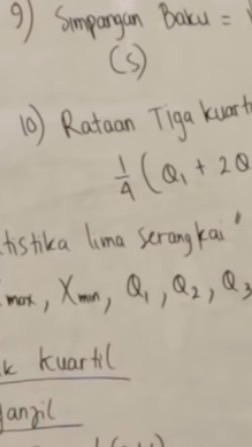 9) Simpangan Baku =
(S)
10) Rataan Tiga kuarti
1/4 (Q₁ + 2Q
tistika lima serangkai
max, Xmin, Q₁, Q₂, Q₃
k kuartil